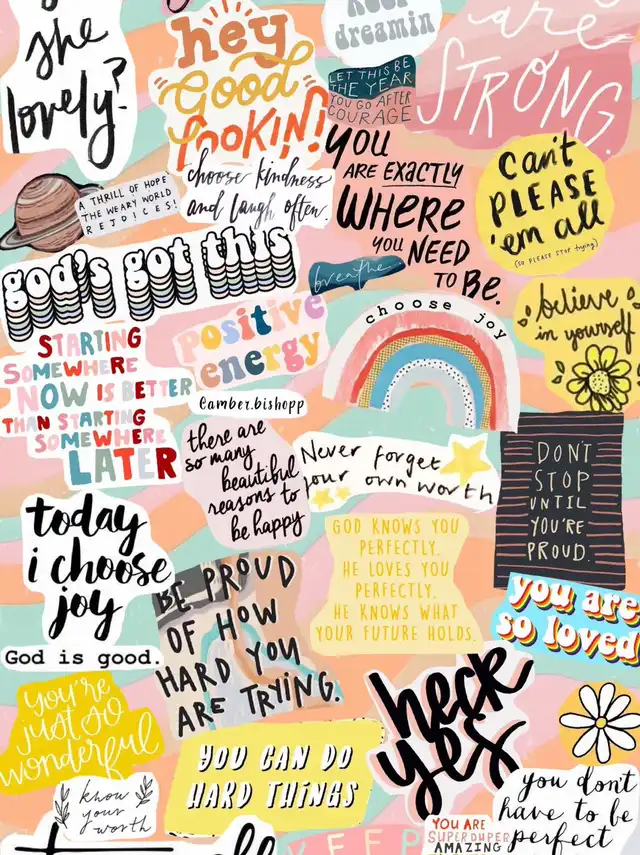 she
lovely?
hey
Good
lookin!
dreamin
LET THIS BE
THE YEAR
YOU GO AFTER
COURAGE
are
STRONG.
A THRILL OF HOPE
THE WEARY WORLD
REJOICES!
choose kindness
and laugh often.
YOU
ARE EXACTLY
WHERE
YOU NEED
TO BE.
can't
PLEASE
'em all
(SO PLEASE STOP trying)
god's got this
breathe
positive
energy
choose joy
believe
in yourself
STARTING
SOMEWHERE
NOW IS BETTER
THAN STARTING
SOMEWHERE
LATER
@amber.bishopp
there are
so many
beautiful
reasons to
be happy
Never forget
your own worth
DONT
STOP
UNTIL
YOU'RE
PROUD.
today
i choose
joy
God is good.
BE PROUD
OF HOW
HARD YOU
ARE TRYING.
GOD KNOWS YOU
PERFECTLY.
HE LOVES YOU
PERFECTLY.
HE KNOWS WHAT
YOUR FUTURE HOLDS.
you are
so loved
you're
just so
wonderful
YOU CAN DO
HARD THINGS
heck
yes
know
your worth
YOU ARE
SUPER DUPER
AMAZING
you don't
have to be
perfect